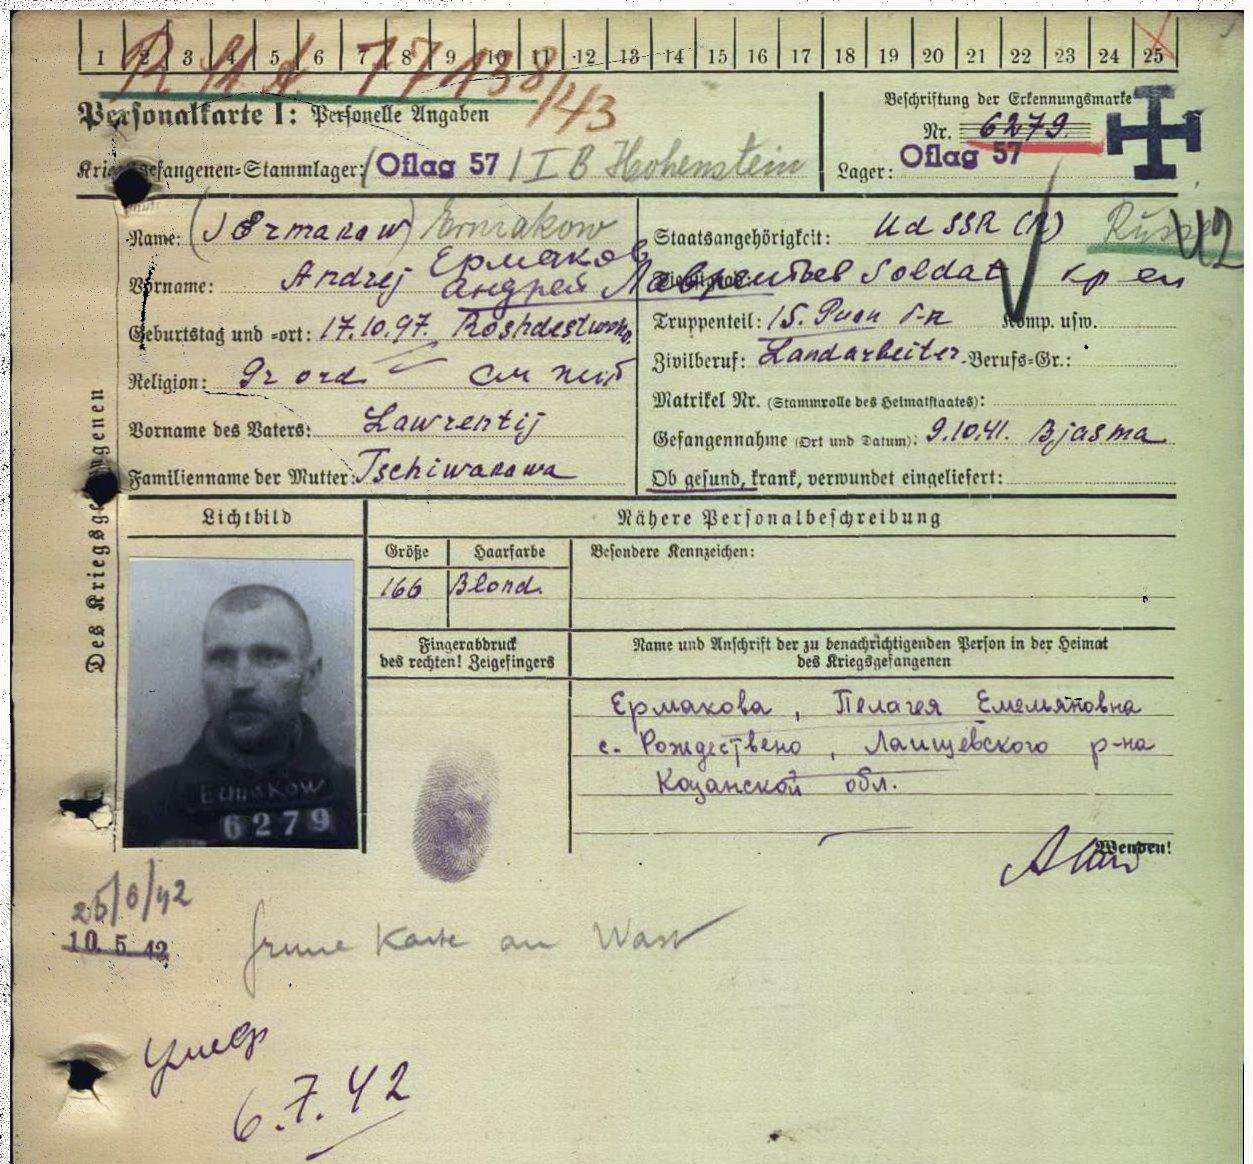 1 2 3 4 5 6 7 8 9 10 11 12 13 14 15 16 17 18 19 20 21 22 23 24 25
77438/43
Personalkarte I: Personelle Angaben
Beschriftung der Erkennungsmarke
Nr. 6279.
Kriegsgefangenen-Stammlager: Oflag 57 / I B Hohenstein
Lager: Oflag 57
Name: (Jermakow) Ermakow
Staatsangehörigkeit: UdSSR (R)
Ермаков
Vorname: Andrej Андрей Лаврентьев
Soldat
Geburtstag und -ort: 17.10.97.
Truppenteil: 15. Komp. usw.
Religion: Gr ord
Zivilberuf: Landarbeiter. Berufs-Gr.:
Matrikel Nr. (Stammrolle des Heimatstaates):
Vorname des Vaters: Lawrentij
Gefangennahme (Ort und Datum): 9.10.41. Bjasma
Familienname der Mutter: Tschiwakowa
Ob gesund, krank, verwundet eingeliefert:
Des Kriegsgefangenen
Lichtbild
Nähere Personalbeschreibung
Größe Haarfarbe Besondere Kennzeichen:
166 Blond.
Fingerabdruck
des rechten! Zeigefingers
Name und Anschrift der zu benachrichtigenden Person in der Heimat
des Kriegsgefangenen
Ермакова, Пелагея Емельяновна
с. Рождествено, Лаишевского р-на
Казанской обл.
Ermakow
6279
Wenden!
25/6/42
10.5.42
Karte an Wast
умер
6.7.42